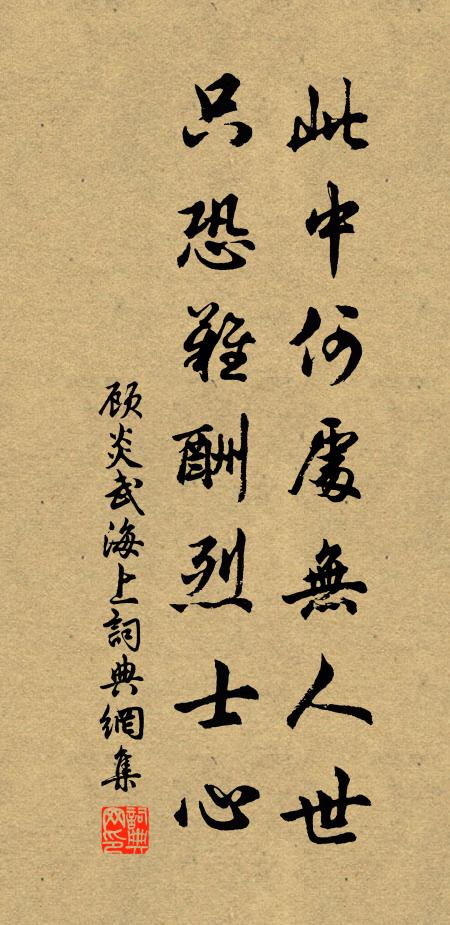 此中何處無人世
只恐難酬烈士心
顧炎武海上詞典網集
詞典网印